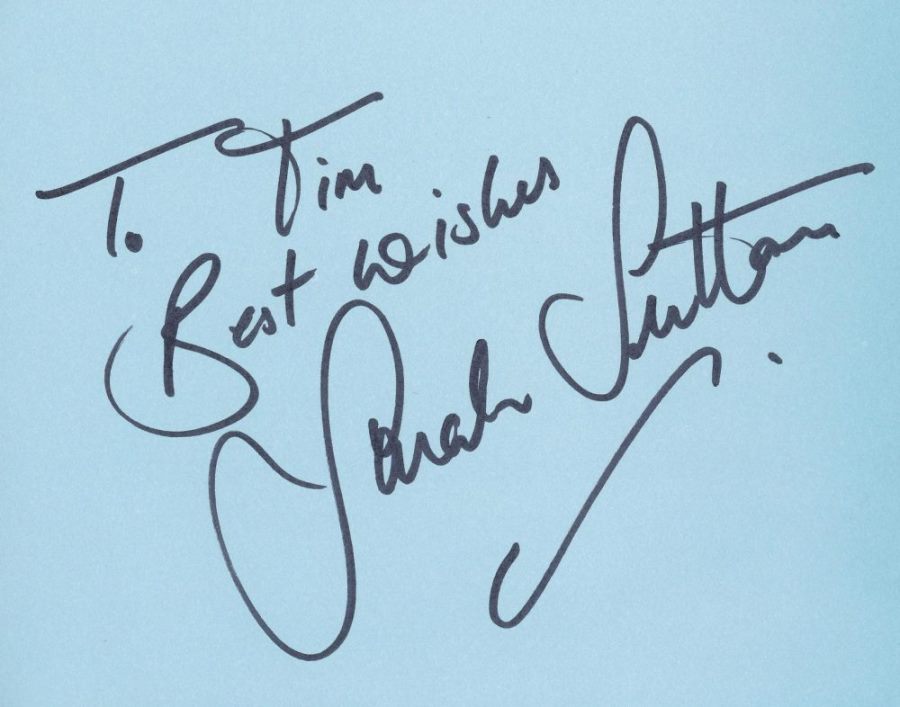 To Tim
Best Wishes
Sarah Sutton.